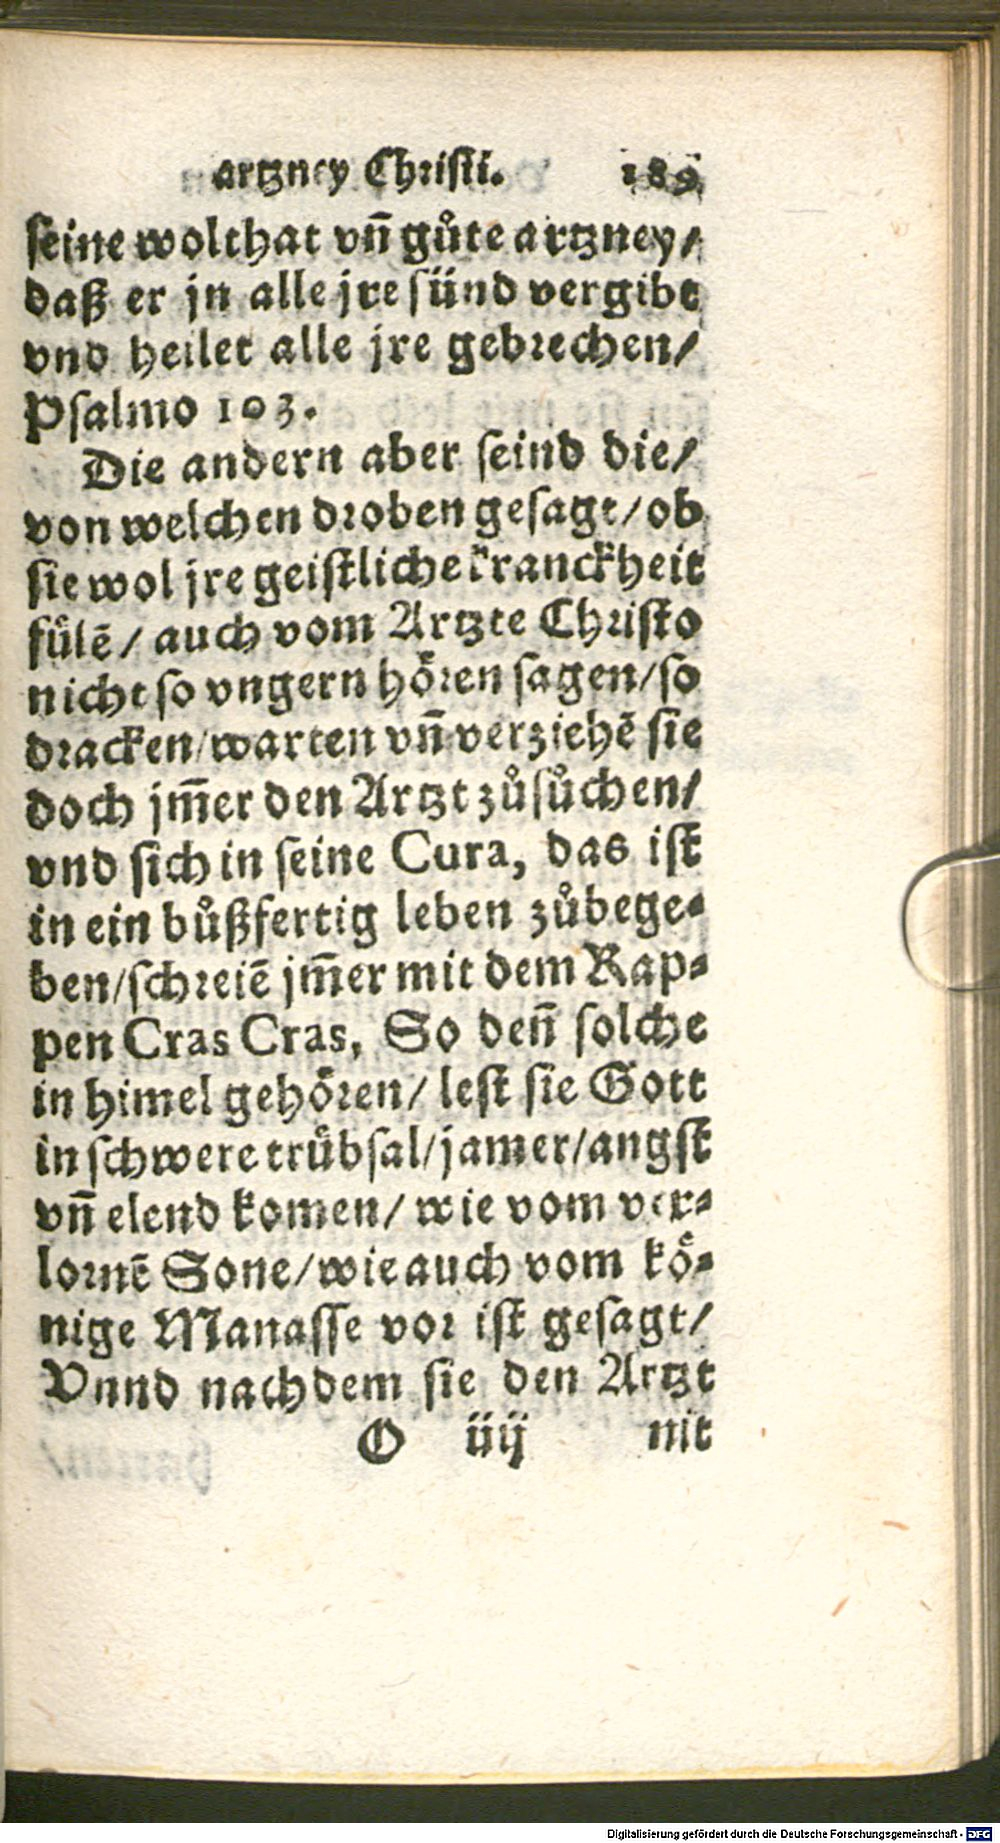 artzney Christi. 189
seine wolthat vñ gůte artzney/
daß er jn alle jre sünd vergibt
vnd heilet alle jre gebrechen/
Psalmo 103.
Die andern aber seind die/
von welchen droben gesagt/ob
sie wol jre geistliche kranckheit
fülē/ auch vom Artzte Christo
nicht so vngern hören sagen/so
dracken/warten vñ verziehē sie
doch jm̃er den Artzt zůsůchen/
vnd sich in seine Cura, das ist
in ein bůßfertig leben zůbege-
ben/schreiē jm̃er mit dem Rap-
pen Cras Cras, So deñ solche
in himel gehören/ lest sie Gott
in schwere trübsal/jamer/angst
vñ elend komen/ wie vom ver-
lornē Sone/wie auch vom kö-
nige Manasse vor ist gesagt/
Vnnd nachdem sie den Artzt
O iiij nit
Digitalisierung gefördert durch die Deutsche Forschungsgemeinschaft - DFG